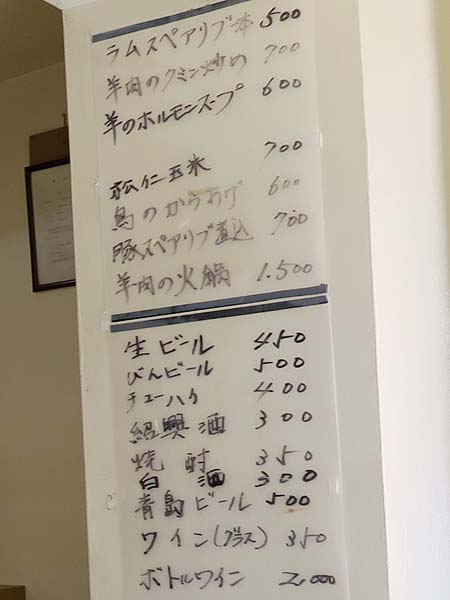 ラムスペアリブ一本 500
羊肉のクミン炒め 700
羊のホルモンスープ 600
松仁玉米 700
鳥のからあげ 600
豚スペアリブ煮込 700
羊肉の火鍋 1.500
生ビール 450
びんビール 500
チューハイ 400
紹興酒 300
焼酎 350
白酒 300
青島ビール 500
ワイン(グラス) 350
ボトルワイン 2,000